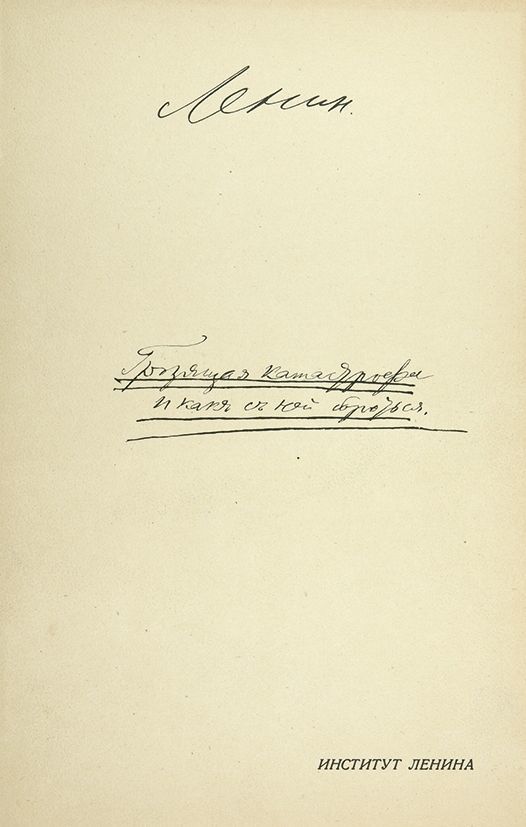 Ленин.
Грозящая катастрофа
и какъ съ ней бороться.
ИНСТИТУТ ЛЕНИНА